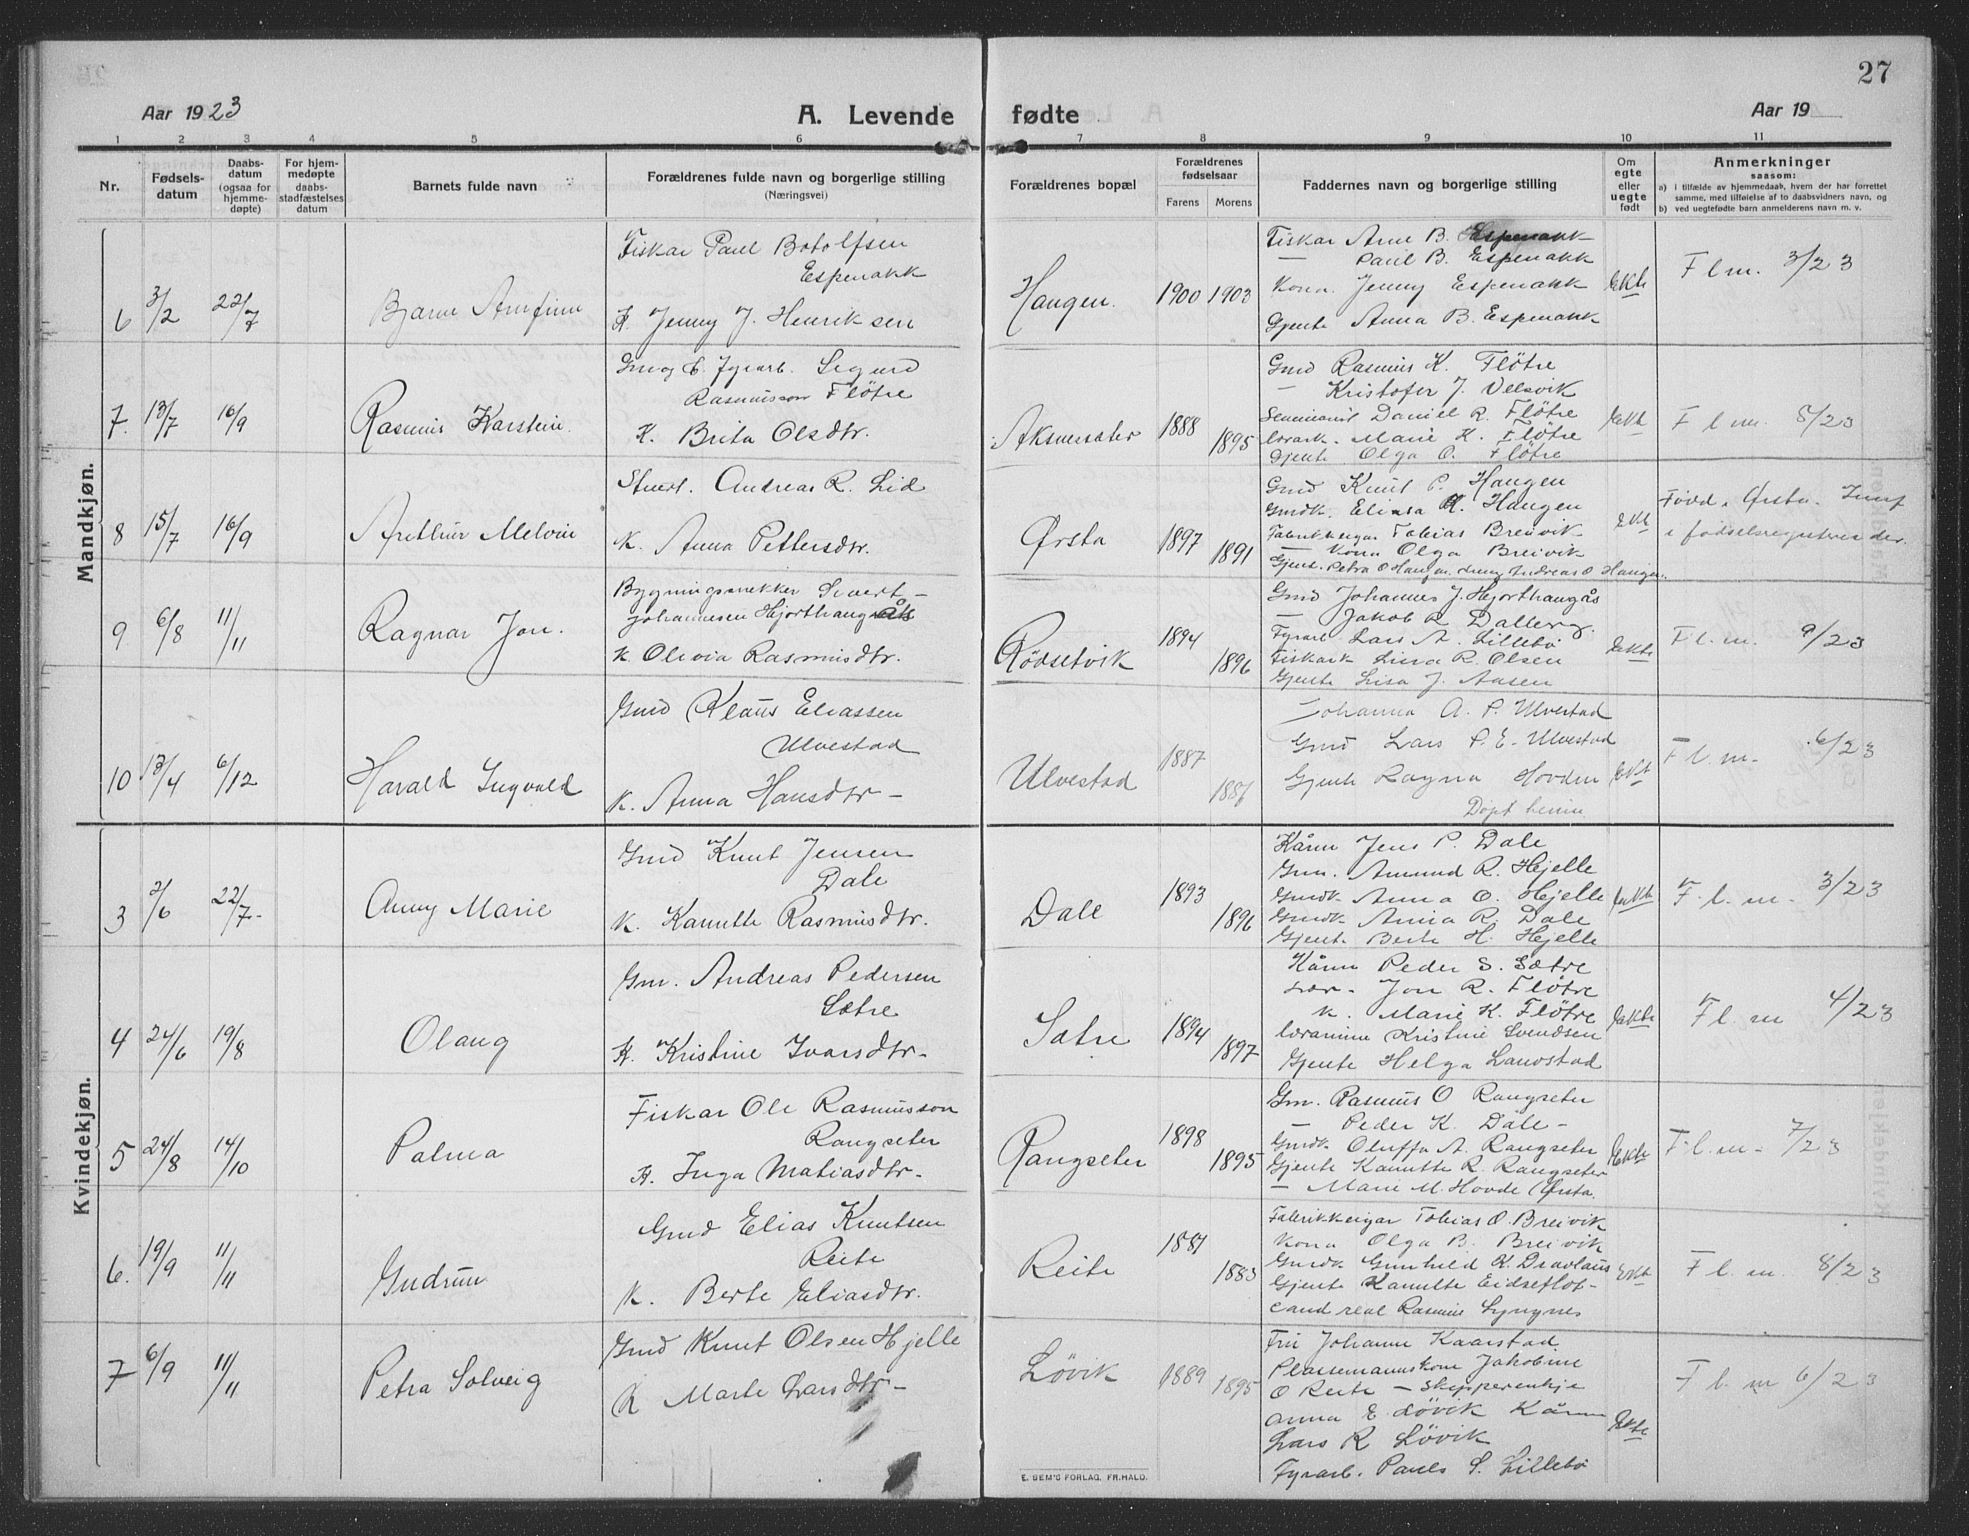 27
Aar 1923
A. Levende fødte
Aar 19
1 2 3 4 5 6 7 8 9 10 11
Nr.
Fødsels-
datum
Daabs-
datum
(ogsaa for
hjemme-
døpte)
For hjem-
medøpte
daabs-
stadfæstelses
datum
Barnets fulde navn
Forældrenes fulde navn og borgerlige stilling
(Næringsvei)
Forældrenes bopæl
Forældrenes
fødselsaar
Farens Morens
Faddernes navn og borgerlige stilling
Om
egte
eller
uegte
født
Anmerkninger
saasom:
a) i tilfælde av hjemmedaab, hvem der har forrettet
samme, med tilføielse af to daabsvidners navn, og
b) ved uegtefødte barn anmelderens navn m. v.
Mandkjøn.
6 3/2 22/7 Bjarne Arnfinn
Fiskar Paul Botolfsen
Espenakk
K. Jenny J. Henriksen
Haugen. 1900 1903
Fiskar Arne B. Espenakk
— Paul B. Espenakk
Kona Jenny Espenakk
Gjente Anna B. Espenakk
Ekte
F l m. 3/23
7. 13/7 16/9 Rasmus Karstein.
Sigurd
Rasmusson Flötre
K. Brita Olsdtr.
1888 1895
Gmd Rasmus K. Flötre
— Kristofer J. Velsvik
Daniel R. Flötre
Marie K. Flötre
Gjente Olga O. Flötre
Ekt
F l m. 5/23
8 15/7 16/9 Arthur Melvin
Stuert. Andreas R. Lid
K. Anna Pettersdtr.
Ørsta 1897 1891
Gmd Knut P. Haugen
Gmdk. Elinsa K. Haugen
Fabrikkeigar Tobias Breivik
— Kona Olga Breivik
Gjent. Petra O Haugen Andreas O Haugen.
Ekt
Född i Ørsta.
i födselsregisteret der.
9 6/8 11/11 Ragnar Jon.
Bygningssnekker Sivert
Johannesen Hjorthaugås
K Olivia Rasmusdtr.
Rödsetvik 1894 1896
Gmd Johannes J. Hjorthaugås
— Jakob R Dalberg.
Fyrarb Lars A. Lillebö
Fiskark Lina R. Olsen
Gjente Lisa J. Aasen
Ekte
F l. m. 9/23
10 13/4 6/12 Harald Ingvald
Gmd Klaus Eliassen
Ulvestad
K. Anna Hansdtr —
Ulvestad 1887
Johanna A. P. Ulvestad
Gmd Lars P. E. Ulvestad
Gjente Ragna Hovden
Döpt heime
Ekt
F l. m. 6/23
Kvindekjøn.
3 2/6 22/7. Anny Marie
Gmd Knut Jensen
Dale
K. Kanutte Rasmusdtr.
Dale 1893 1896
Kårm Jens P. Dale
Gm. Amund R. Hjelle
Gmdk Anna O. Hjelle
Gmdk Anna R. Dale
Gjente Berte H. Hjelle
Ekte
F. l. m. 3/23
4 24/6 19/8 Olaug
Gm. Andreas Pedersen
Sætre
K. Kristine Ivarsdtr.
Sætre 1894 1897
Kårm Peder S. Sætre
Lær. Jon R. Flötre
K. Marie K. Flötre
Lærarinne Kristine Svendsen
Gjente Helga Landstad
Ekte
F l. m 4/23
5 24/8 14/10 Palma
Fiskar Ole Rasmusson
Rangseter
K. Inga Matiasdtr.
Rangseter 1898 1895
Gm. Rasmus O Rangseter
— Peder K. Dale —
Gmdk. Oluffa A. Rangseter
Gjente Kanutte R. Rangseter
— Marie M. Hovde Ørsta.
Ekte
F. l. m. 7/23
6. 19/9 11/11 Gudrun
Gmd Elias Knutsen
Reite
K. Berte Eliasdtr.
Reite 1881 1883
Fabrikkeigar Tobias O. Breivik
Kona Olga B. Breivik
Gmdk Gunhild K. Dravlaus
Gjente Kanutte Eidseflot
Cand real Rasmus Lyngnes
Ekt
F l. m. 8/23
7 6/9 11/11 Petra Solveig
Gmd Knut Olsen Hjelle
K Marte Larsdtr —
Lövik 1889 1895
Fru Johanne Kaarstad
Plassemannskone Jakobine
O Reite — Skipperenkje
Anna E. Lövik Kårm
Lars R Lövik
Fyrarb. Pauls S. Lillebö
Ekte
F l. m 6/23
E. SEM'S FORLAG, FR.HALD.